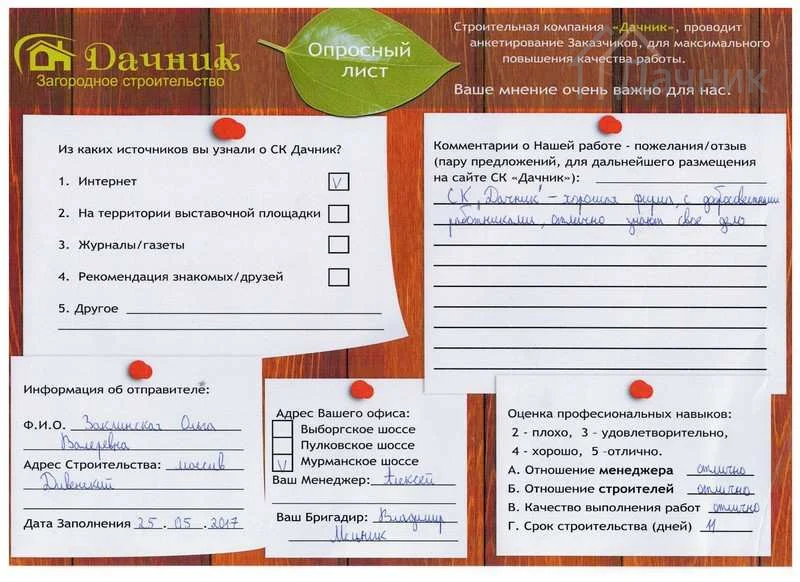 Дачник
Загородное строительство
Опросный
лист
Строительная компания «Дачник», проводит
анкетирование Заказчиков, для максимального
повышения качества работы.
Ваше мнение очень важно для нас.
Дачник
Из каких источников вы узнали о СК Дачник?
1. Интернет V
2. На территории выставочной площадки
3. Журналы/газеты
4. Рекомендация знакомых/друзей
5. Другое
Комментарии о Нашей работе - пожелания/отзыв
(пару предложений, для дальнейшего размещения
на сайте СК «Дачник»):
СК "Дачник" - хорошая фирма, с добросовестными
работниками, отлично знают свое дело
Информация об отправителе:
Ф.И.О. Заклинская Ольга
Валерьевна
Адрес Строительства: массив
Дивенский
Дата Заполнения 25.05.2017
Адрес Вашего офиса:
Выборгское шоссе
Пулковское шоссе
V Мурманское шоссе
Ваш Менеджер: Алексей
Ваш Бригадир: Владимир
Мецник
Оценка профессиональных навыков:
2 - плохо, 3 - удовлетворительно,
4 - хорошо, 5 -отлично.
А. Отношение менеджера отлично
Б. Отношение строителей отлично
В. Качество выполнения работ отлично
Г. Срок строительства (дней) 11